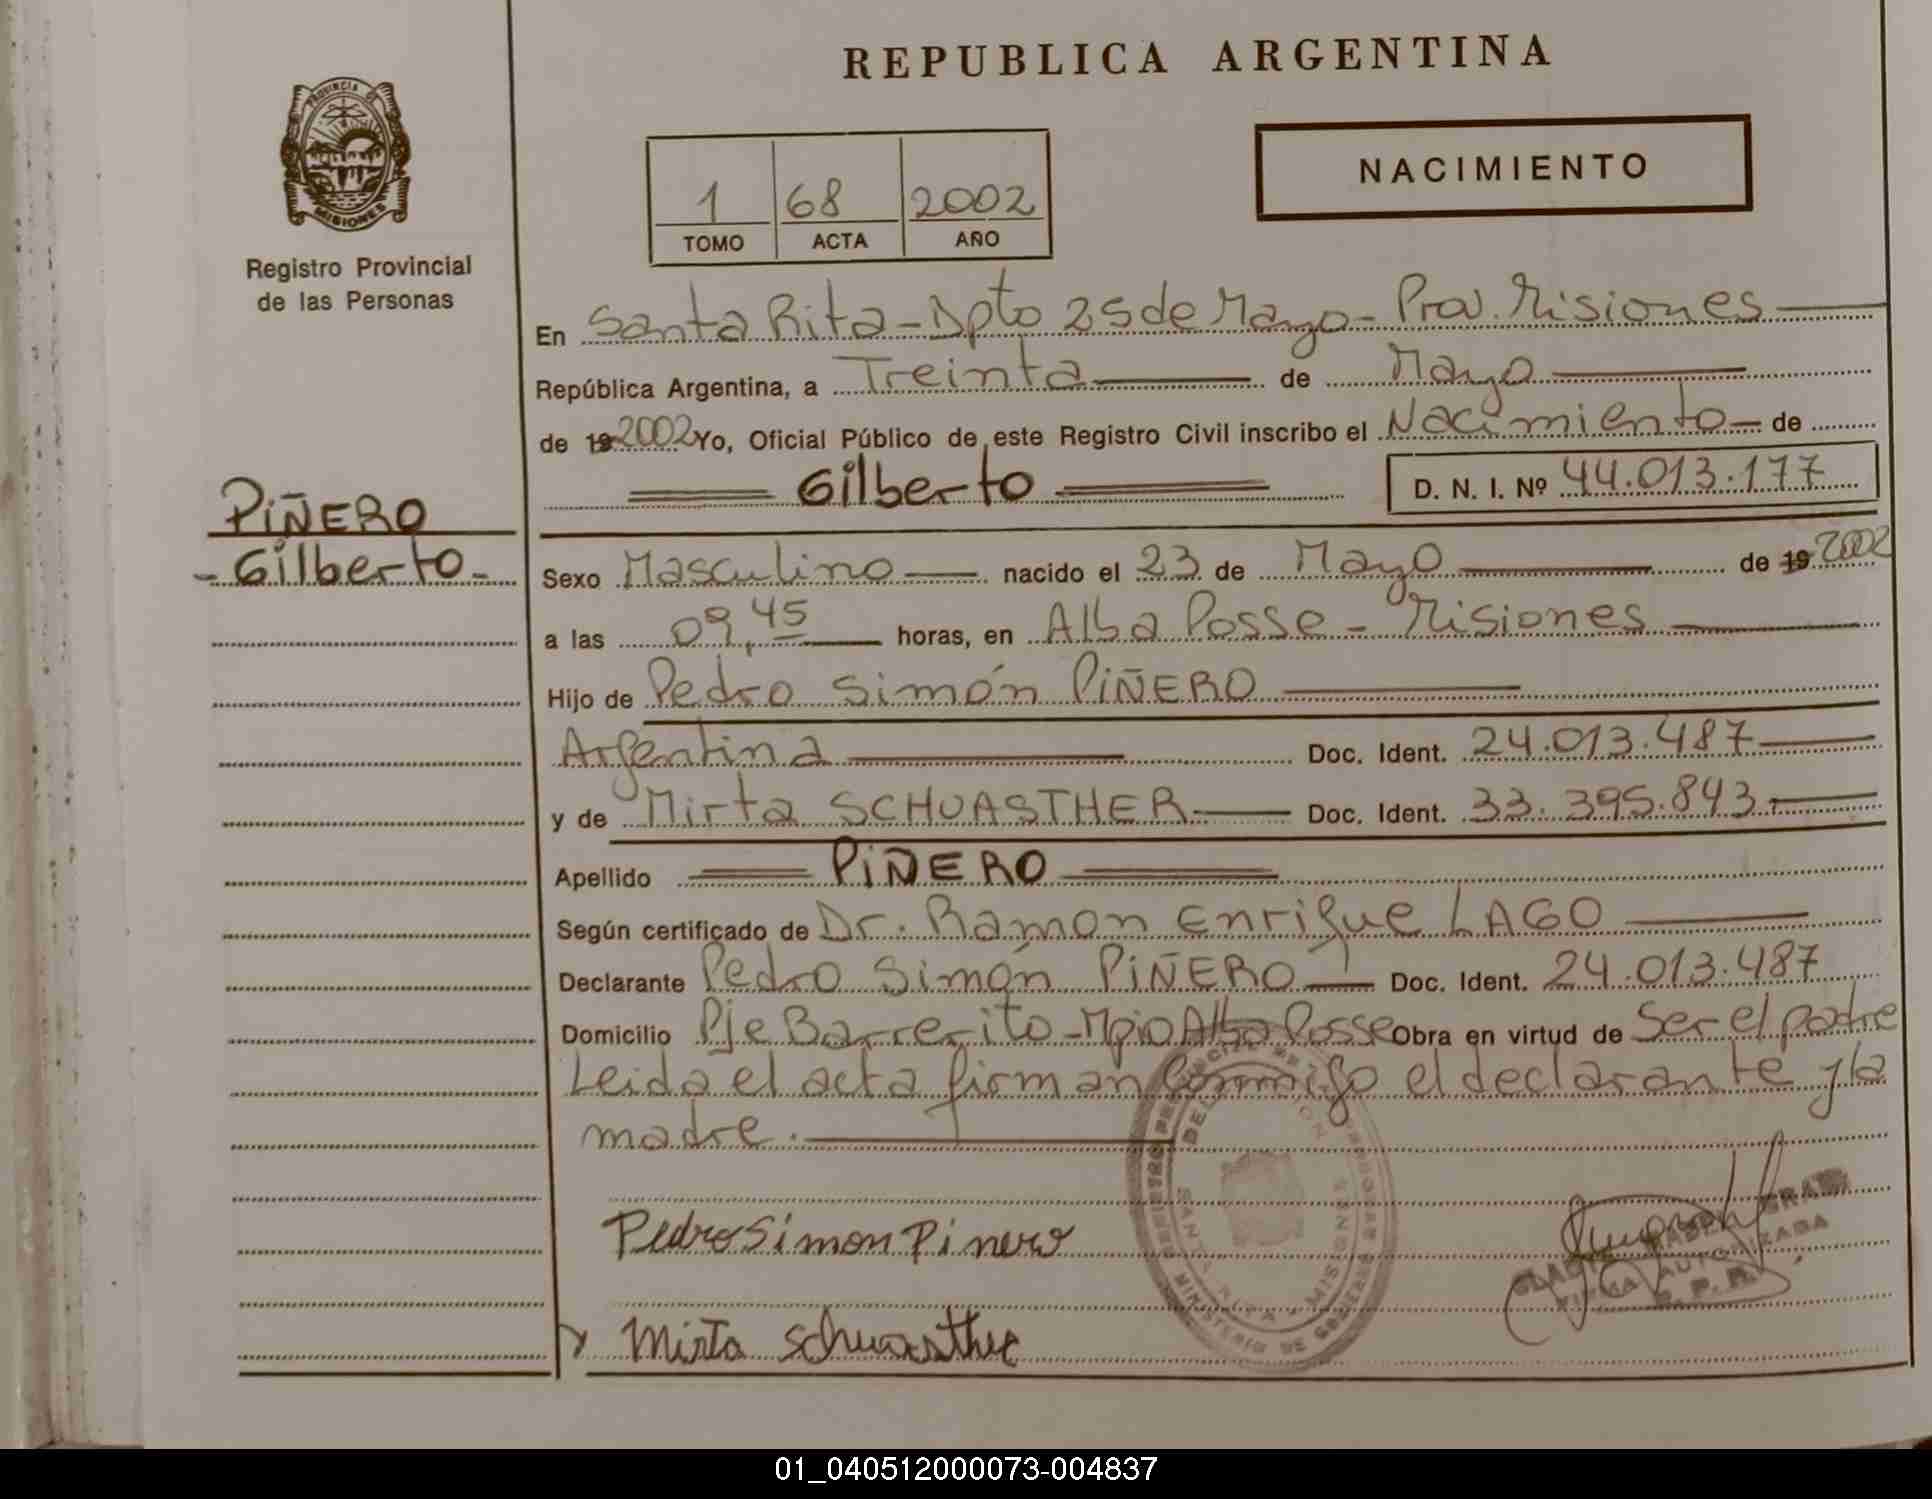 REPUBLICA ARGENTINA
PROVINCIA DE
MISIONES
Registro Provincial
de las Personas
1 68 2002
TOMO ACTA AÑO
NACIMIENTO
En Santa Rita - Dpto 25 de Mayo - Prov. Misiones
República Argentina, a Treinta de Mayo
de 19 2002 Yo, Oficial Público de este Registro Civil inscribo el Nacimiento de
Gilberto D. N. I. Nº 44.013.177
PIÑERO
- Gilberto -
Sexo Masculino nacido el 23 de Mayo de 19 2002
a las 09,45 horas, en Alba Posse - Misiones
Hijo de Pedro Simón PIÑERO
Argentina Doc. Ident. 24.013.487
y de Mirta SCHUASTHER Doc. Ident. 33.395.843
Apellido PIÑERO
Según certificado de Dr. Ramon Enrique LAGO
Declarante Pedro Simón PIÑERO Doc. Ident. 24.013.487
Domicilio Pje Barrerito - Mpio Alba Posse Obra en virtud de Ser el padre
Leida el acta firman conmigo el declarante y la
madre.
SANTA RITA - MISIONES
MINISTERIO DE GOBIERNO
Pedro Simon Pinero
FIRMA AUTORIZADA
R. P. P.
Mirta Schuasther
01_040512000073-004837